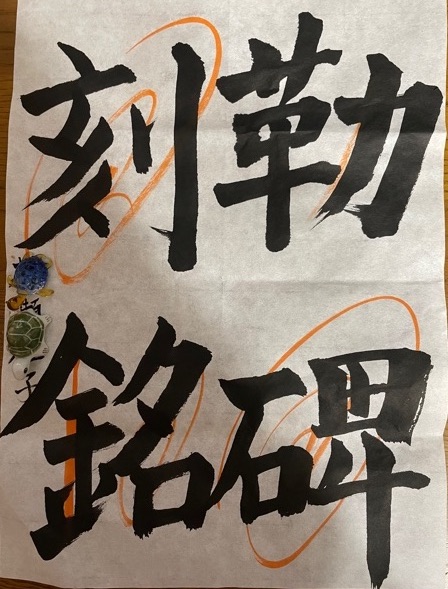 勒碑
刻銘